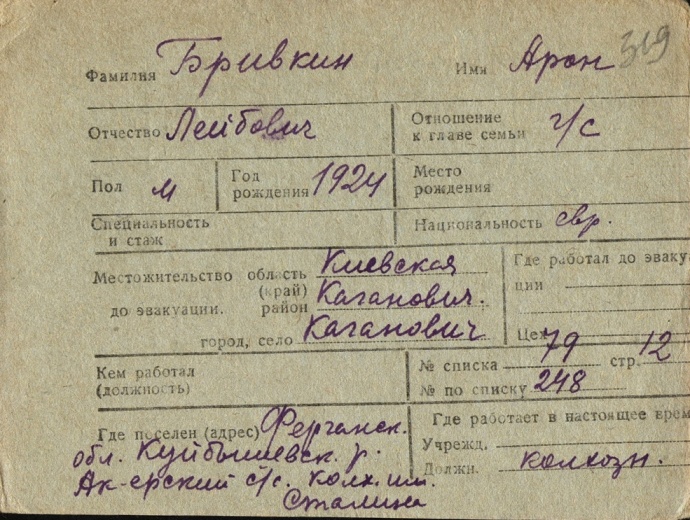 319
Фамилия Бривкин Имя Арон
Отчество Лейбович
Отношение
к главе семьи г/с
Пол м
Год
рождения 1924
Место
рождения
Специальность
и стаж
Национальность евр.
Местожительство область Киевская
(край)
до эвакуации. район Каганович.
город, село Каганович
Где работал до эваку
ции
Цех
Кем работал
(должность)
№ списка 79 стр. 12
№ по списку 248
Где поселен (адрес) Ферганск.
обл. Куйбышевск. р.
Ак-ерский с/с. колх. им.
Сталина
Где работает в настоящее врем
Учрежд.
Должн. колхозн.